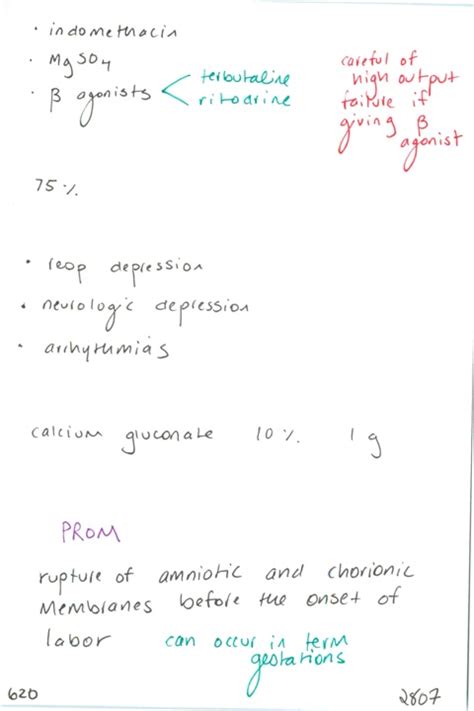 • indomethacin
• MgSO4
• β agonists < terbutaline
ritodrine
careful of
high output
failure if
giving β
agonist
75 %
• resp depression
• neurologic depression
• arrhythmias
calcium gluconate 10 % 1 g
PROM
rupture of amniotic and chorionic
membranes before the onset of
labor can occur in term
gestations
620
2807